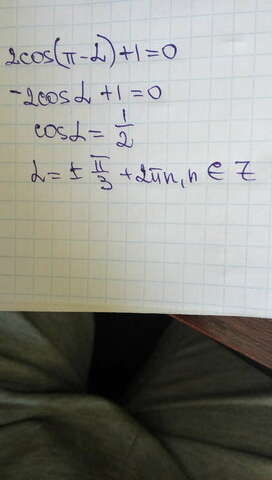 2cos(π-α)+1=0
-2cosα+1=0
cosα=1/2
α=±π/3+2πn, n∈Z